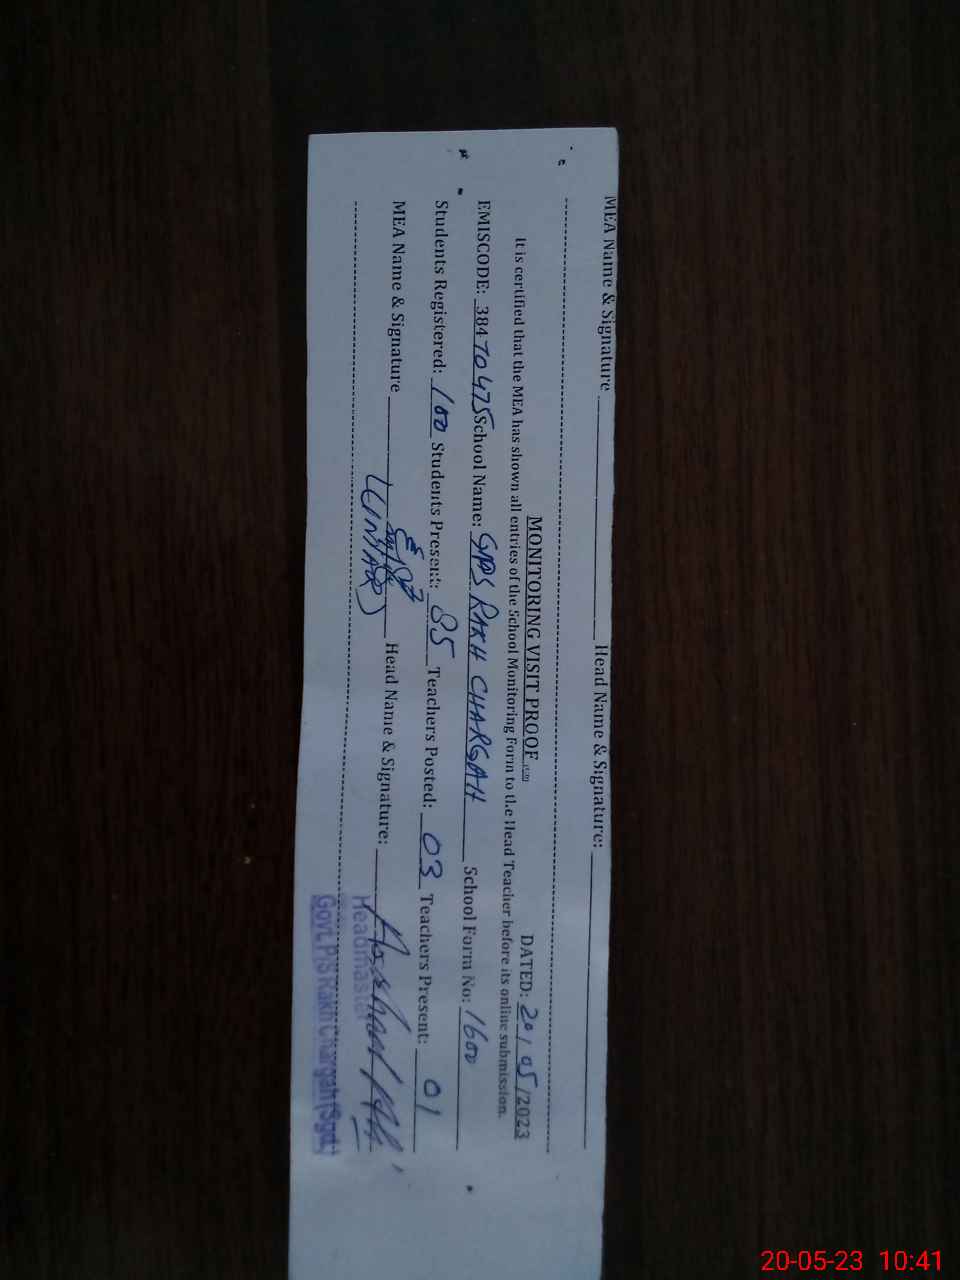 MEA Name & Signature ____________ Head Name & Signature: ____________
MONITORING VISIT PROOF DATED: 20/05/2023
It is certified that the MEA has shown all entries of the School Monitoring Form to the Head Teacher before its online submission.
EMISCODE: 38470475 School Name: GPS RAKH CHARGAH School Form No: 1600
Students Registered: 100 Students Present: 85 Teachers Posted: 03 Teachers Present: 01
MEA Name & Signature ____________ Head Name & Signature:
Headmaster
Govt. P/S Rakh Chargah (Sgd.)
20-05-23 10:41